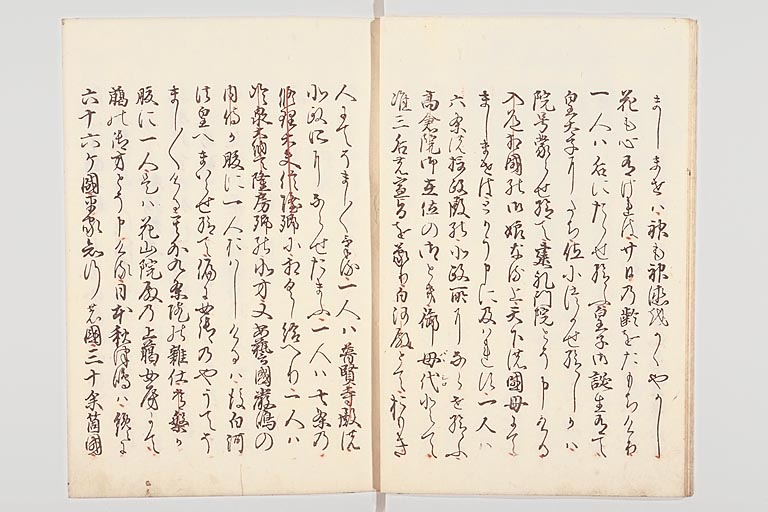 ましませは神も神徳をかゝやかし
花も心有けれは廿日の齢をたもちける
一人は后にたゝせ給ふ皇子御誕生有て
皇太子にたち位につかせ給しかは
院号蒙らせ給て建礼門院とそ申ける
入道相国の御娘なる上天下の国母にて
ましませはとかう申に及はれす一人は
六条の摂政殿の北政所にならせ給ふ
高倉院御在位の御とき御母代とて
准三后の宣旨を蒙り白河殿とておもき
人にてそまし〳〵ける一人は普賢寺殿の
北政所にならせたまふ一人は七条の
修理大夫信隆卿に相具し給へり一人は
冷泉大納言隆房卿の北方又安藝國嚴嶋の
内侍か腹に一人おはしけるは後白河
法皇へまいらせ給て偏に女御のやうてそ
まし〳〵ける其外九条院の雑仕常葉か
腹に一人是は花山院殿の上臈女房にて
臈の御方とそ申ける日本秋津嶋は纔に
六十六ケ國平家知行の國三十余箇國